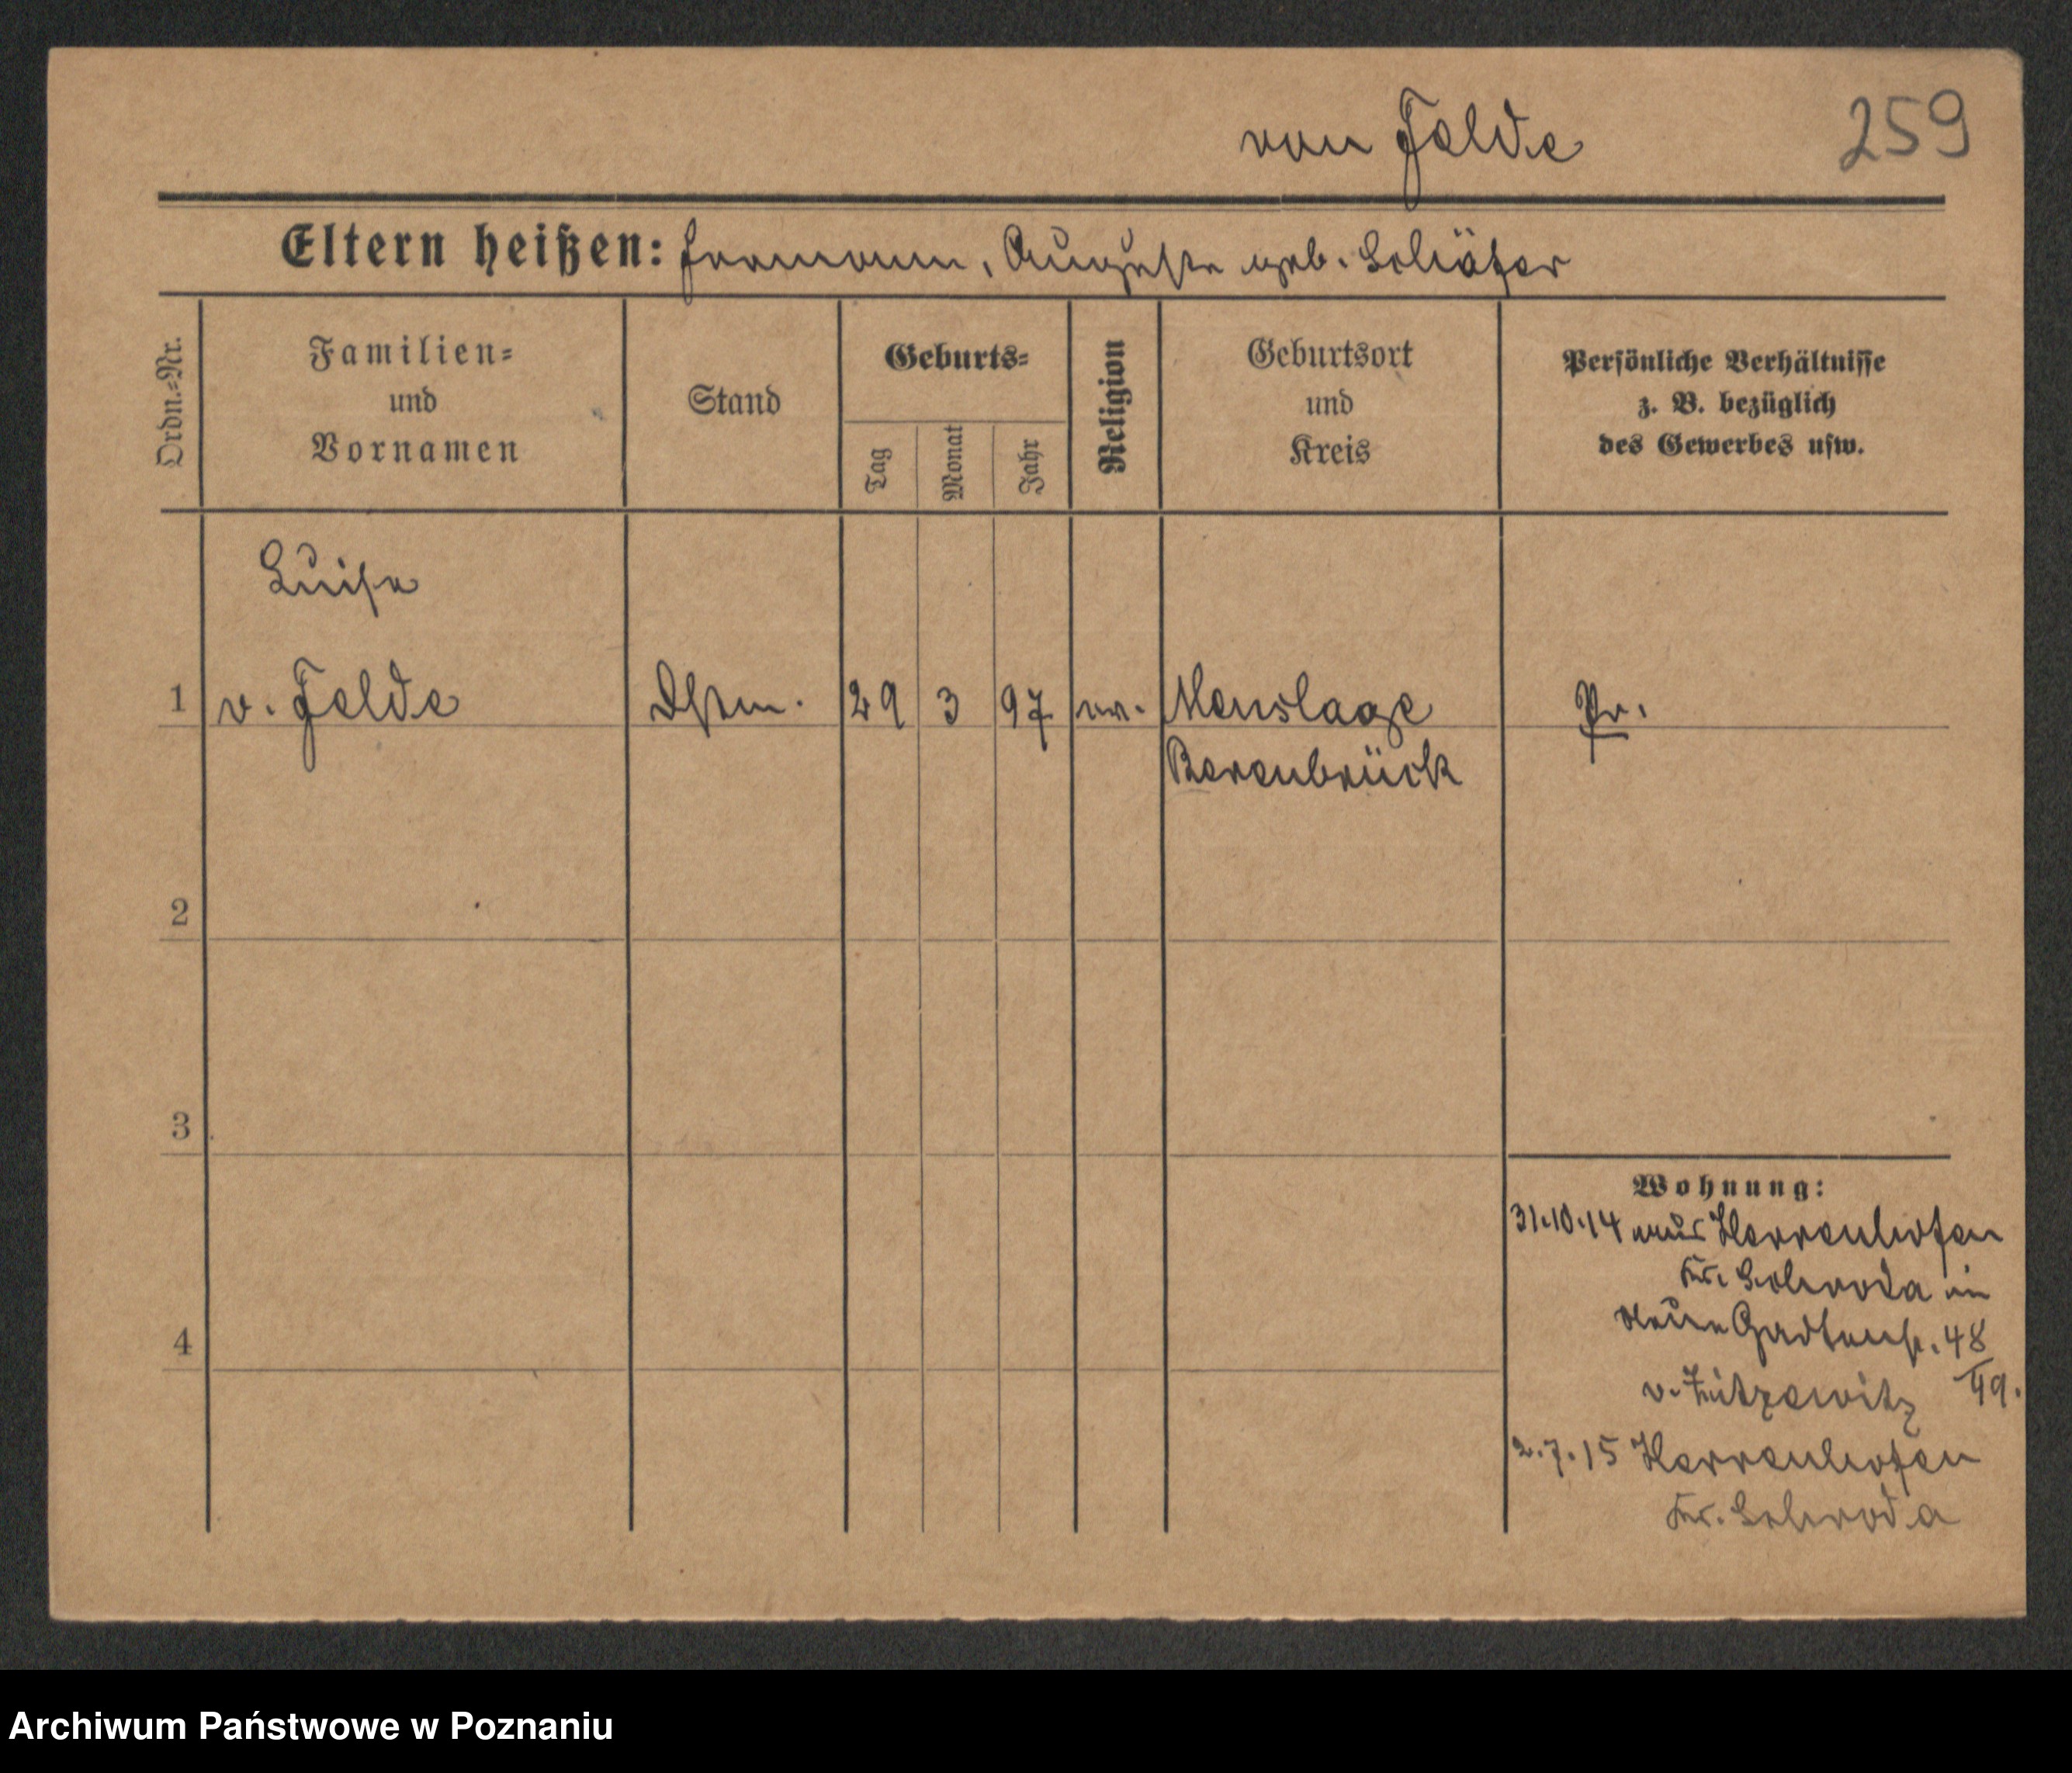 von Felde
259
Eltern heißen: Hermann, Auguste geb. Schäfer
Ordn.=Nr.
Familien=
und
Vornamen
Stand
Geburts=
Tag
Monat
Jahr
Religion
Geburtsort
und
Kreis
Persönliche Verhältnisse
z. B. bezüglich
des Gewerbes usw.
Luise
1 v. Felde Dstm. 29 3 97 ev. Menslage Pr.
Bersenbrück
2
3
4
Wohnung:
31.10.14 aus Herrenhofen
Kr. Schroda in
Neue Gartenstr. 48
v. Zitzewitz 49.
2.7.15 Herrenhofen
Kr. Schroda
Archiwum Państwowe w Poznaniu